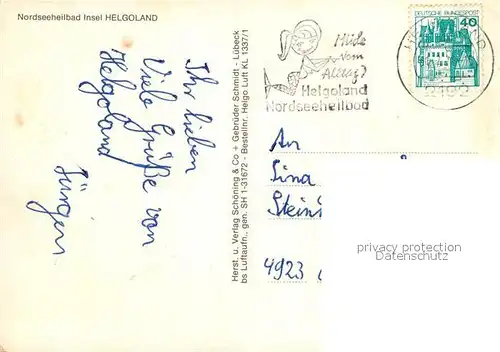 Nordseeheilbad Insel HELGOLAND
Ihr lieben
Viele Grüße von
Helgoland
Jürgen
Herst. u. Verlag Schöning & Co + Gebrüder Schmidt - Lübeck
bs Luftaufn., gen. SH 1-31672 - Bestellnr. Helgo Luft KL 1337/1
Müde
vom
Alltag?
Helgoland
Nordseeheilbad
DEUTSCHE BUNDESPOST
40
2192
An
Sina
Stein
4923
privacy protection
Datenschutz